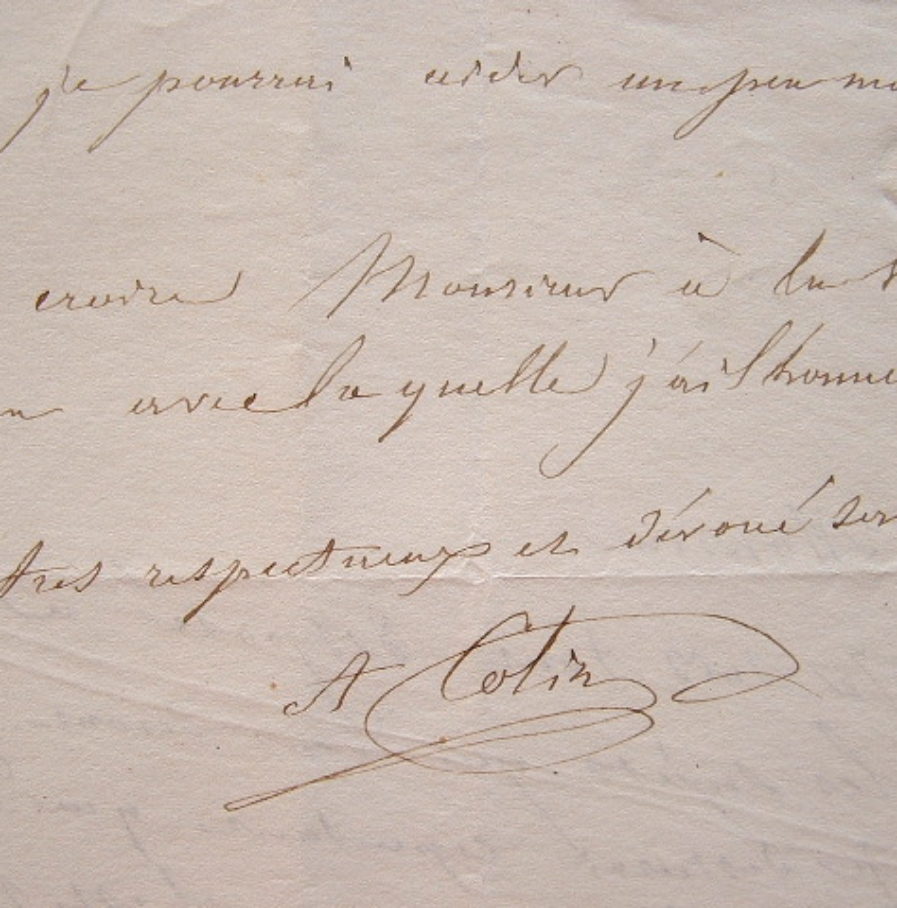 je pourrai aider un peu
croire Monsieur à la
avec laquelle j'ai l'honne
très respectueux et dévoué ser
A Colin